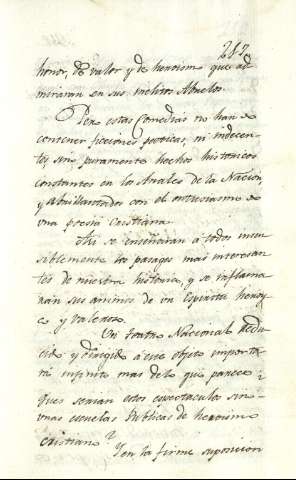 287.
honor, de valor y de heroismo que ad
miraran en sus inclitos Abuelos.
Pero estas Comedias no han de
contener ficciones poeticas, ni indecen
tes, sino puramente hechos historicos
constantes en los Anales de la Nacion,
y Abrillantados con el entusiasmo de
una poesia Cristiana.
Asi se enseñaran a todos insen
siblemente los parages mas interesan
tes de nuestra historia, y se inflama
ran sus animos de un Espiritu heroy
co y valeroso.
Un Teatro Nacional dedu
cido y dirigido á este objeto importa
ra infinito mas de lo que parece:
ques serian estos espectaculos sino
unas escuelas publicas de heroismo
cristiano?
Y en la firme suposicion